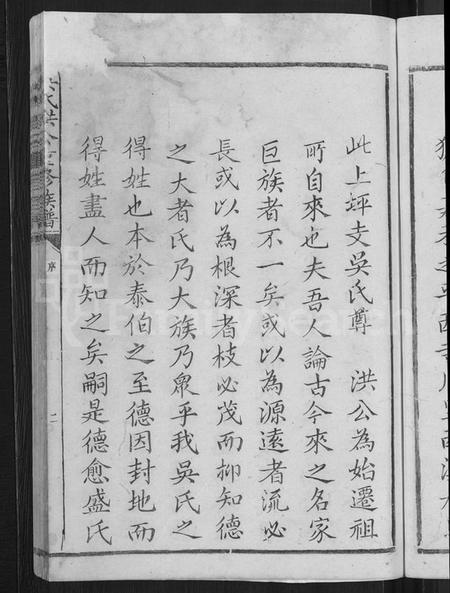 此上坪支吳氏尊 洪公為始遷祖
所自來也夫吾人論古今來之名家
巨族者不一矣或以為源遠者流必
長或以為根深者枝必茂而抑知德
之大者氏乃大族乃衆乎我吳氏之
得姓也本於泰伯之至德因封地而
得姓盡人而知之矣嗣是德愈盛氏
氏洪公重修族譜
序
二
FamilySearch